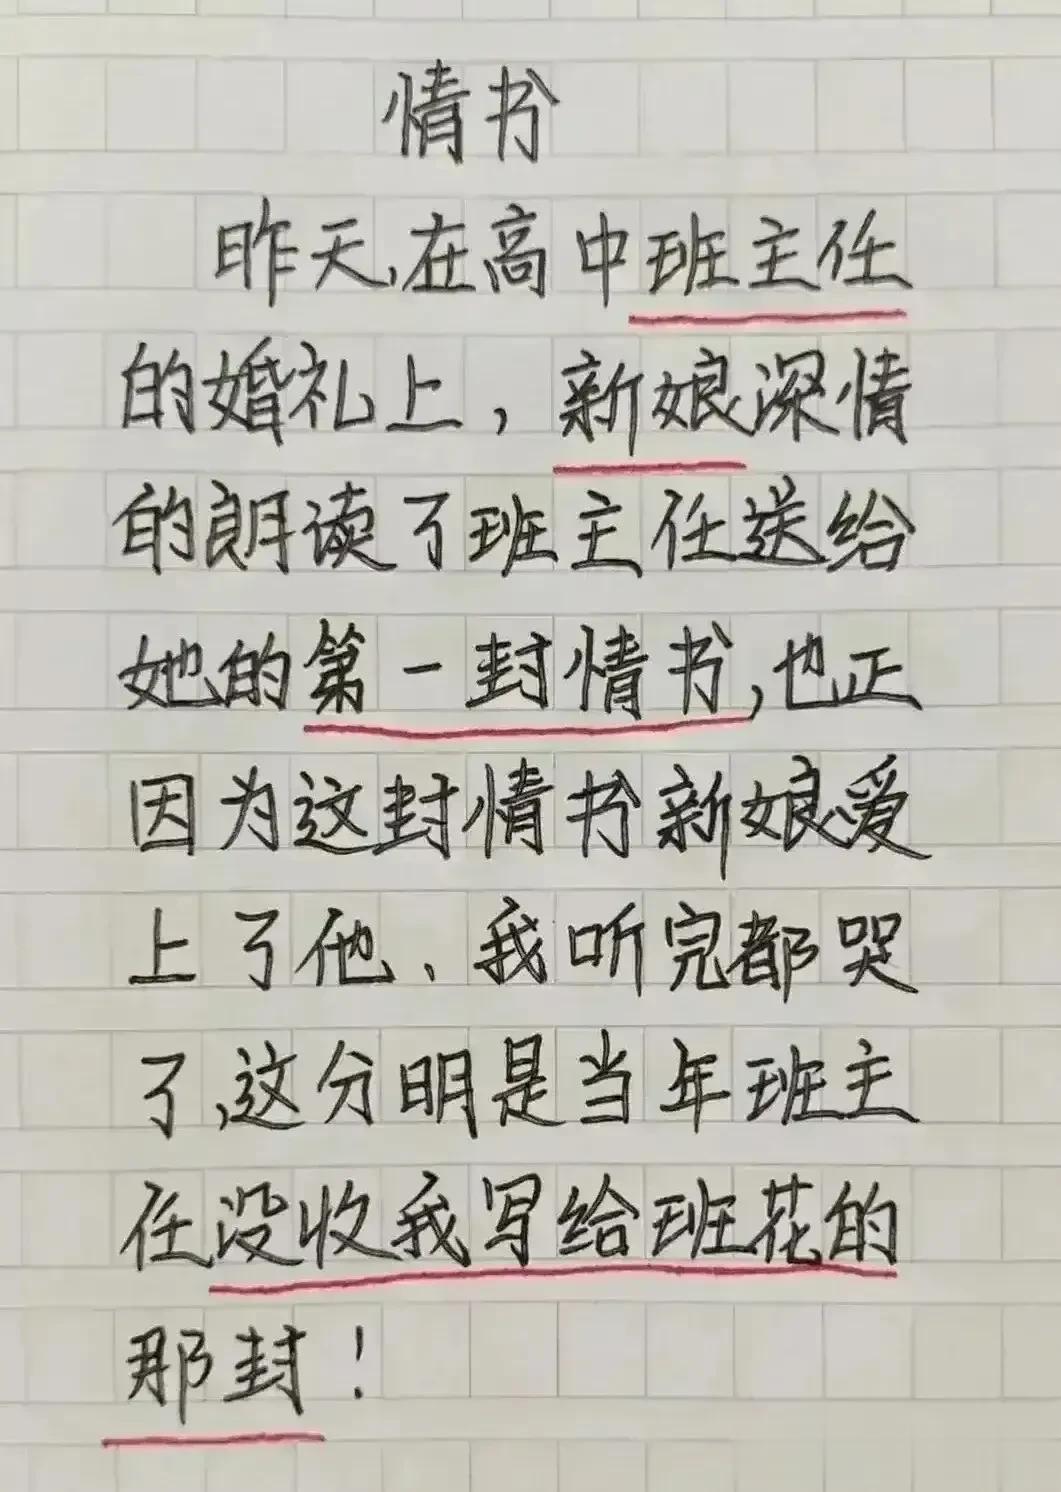 情书
昨天,在高中班主任
的婚礼上,新娘深情
的朗读了班主任送给
她的第一封情书,也正
因为这封情书新娘爱
上了他、我听完都哭
了,这分明是当年班主
任没收我写给班花的
那封!